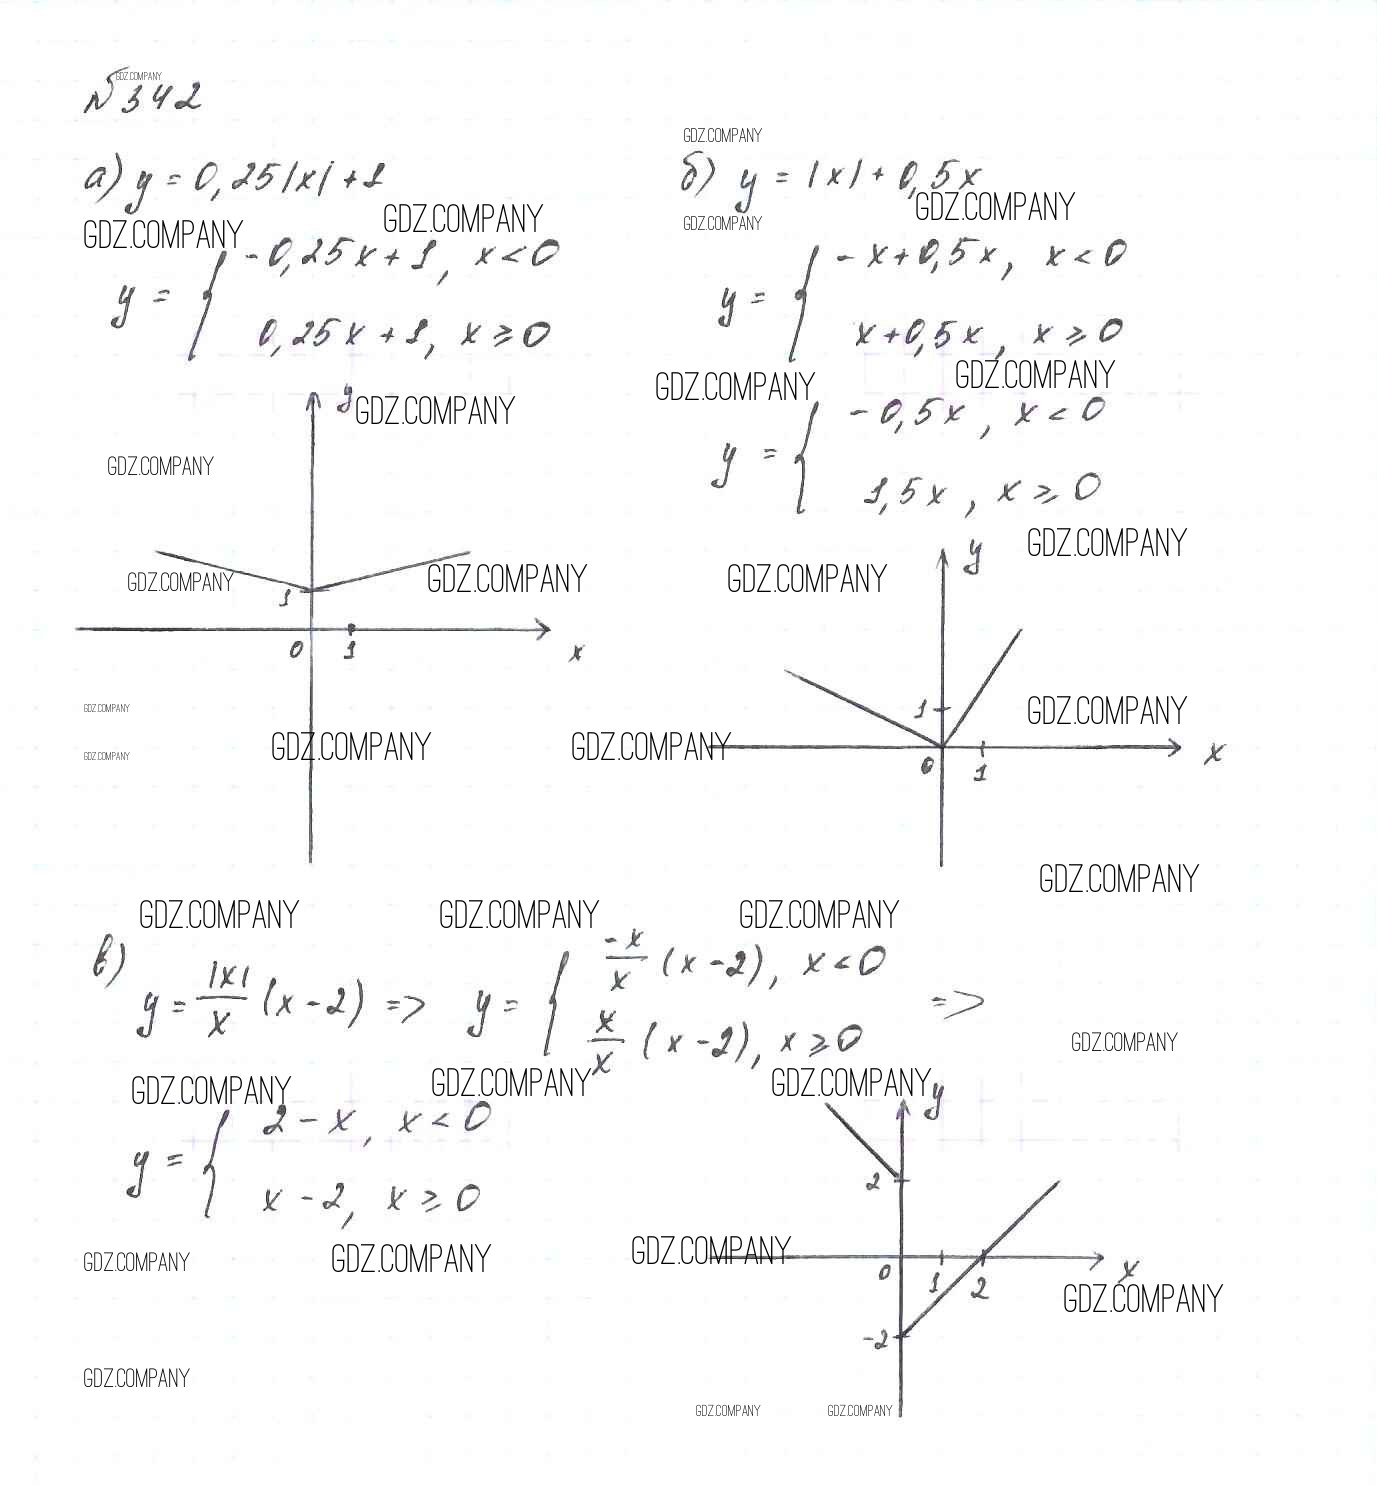 GDZ.COMPANY
№342
GDZ.COMPANY
а) y = 0,25|x| + 1
б) y = |x| + 0,5x
GDZ.COMPANY
GDZ.COMPANY
GDZ.COMPANY
GDZ.COMPANY
y = { -0,25x + 1, x < 0
0,25x + 1, x ≥ 0
y = { -x + 0,5x, x < 0
x + 0,5x, x ≥ 0
GDZ.COMPANY
GDZ.COMPANY
y
GDZ.COMPANY
y = { -0,5x, x < 0
1,5x, x ≥ 0
GDZ.COMPANY
GDZ.COMPANY
y
GDZ.COMPANY
GDZ.COMPANY
GDZ.COMPANY
1
0 1 x
GDZ.COMPANY
GDZ.COMPANY
1
GDZ.COMPANY
GDZ.COMPANY
GDZ.COMPANY
GDZ.COMPANY
0 1 x
GDZ.COMPANY
GDZ.COMPANY
GDZ.COMPANY
GDZ.COMPANY
в)
y = |x|/x (x - 2) => y = { -x/x (x - 2), x < 0
x/x (x - 2), x ≥ 0 =>
GDZ.COMPANY
GDZ.COMPANY
GDZ.COMPANY
GDZ.COMPANY
y
y = { 2 - x, x < 0
x - 2, x ≥ 0
2
GDZ.COMPANY
GDZ.COMPANY
GDZ.COMPANY
0 1 2 x
GDZ.COMPANY
-2
GDZ.COMPANY
GDZ.COMPANY
GDZ.COMPANY